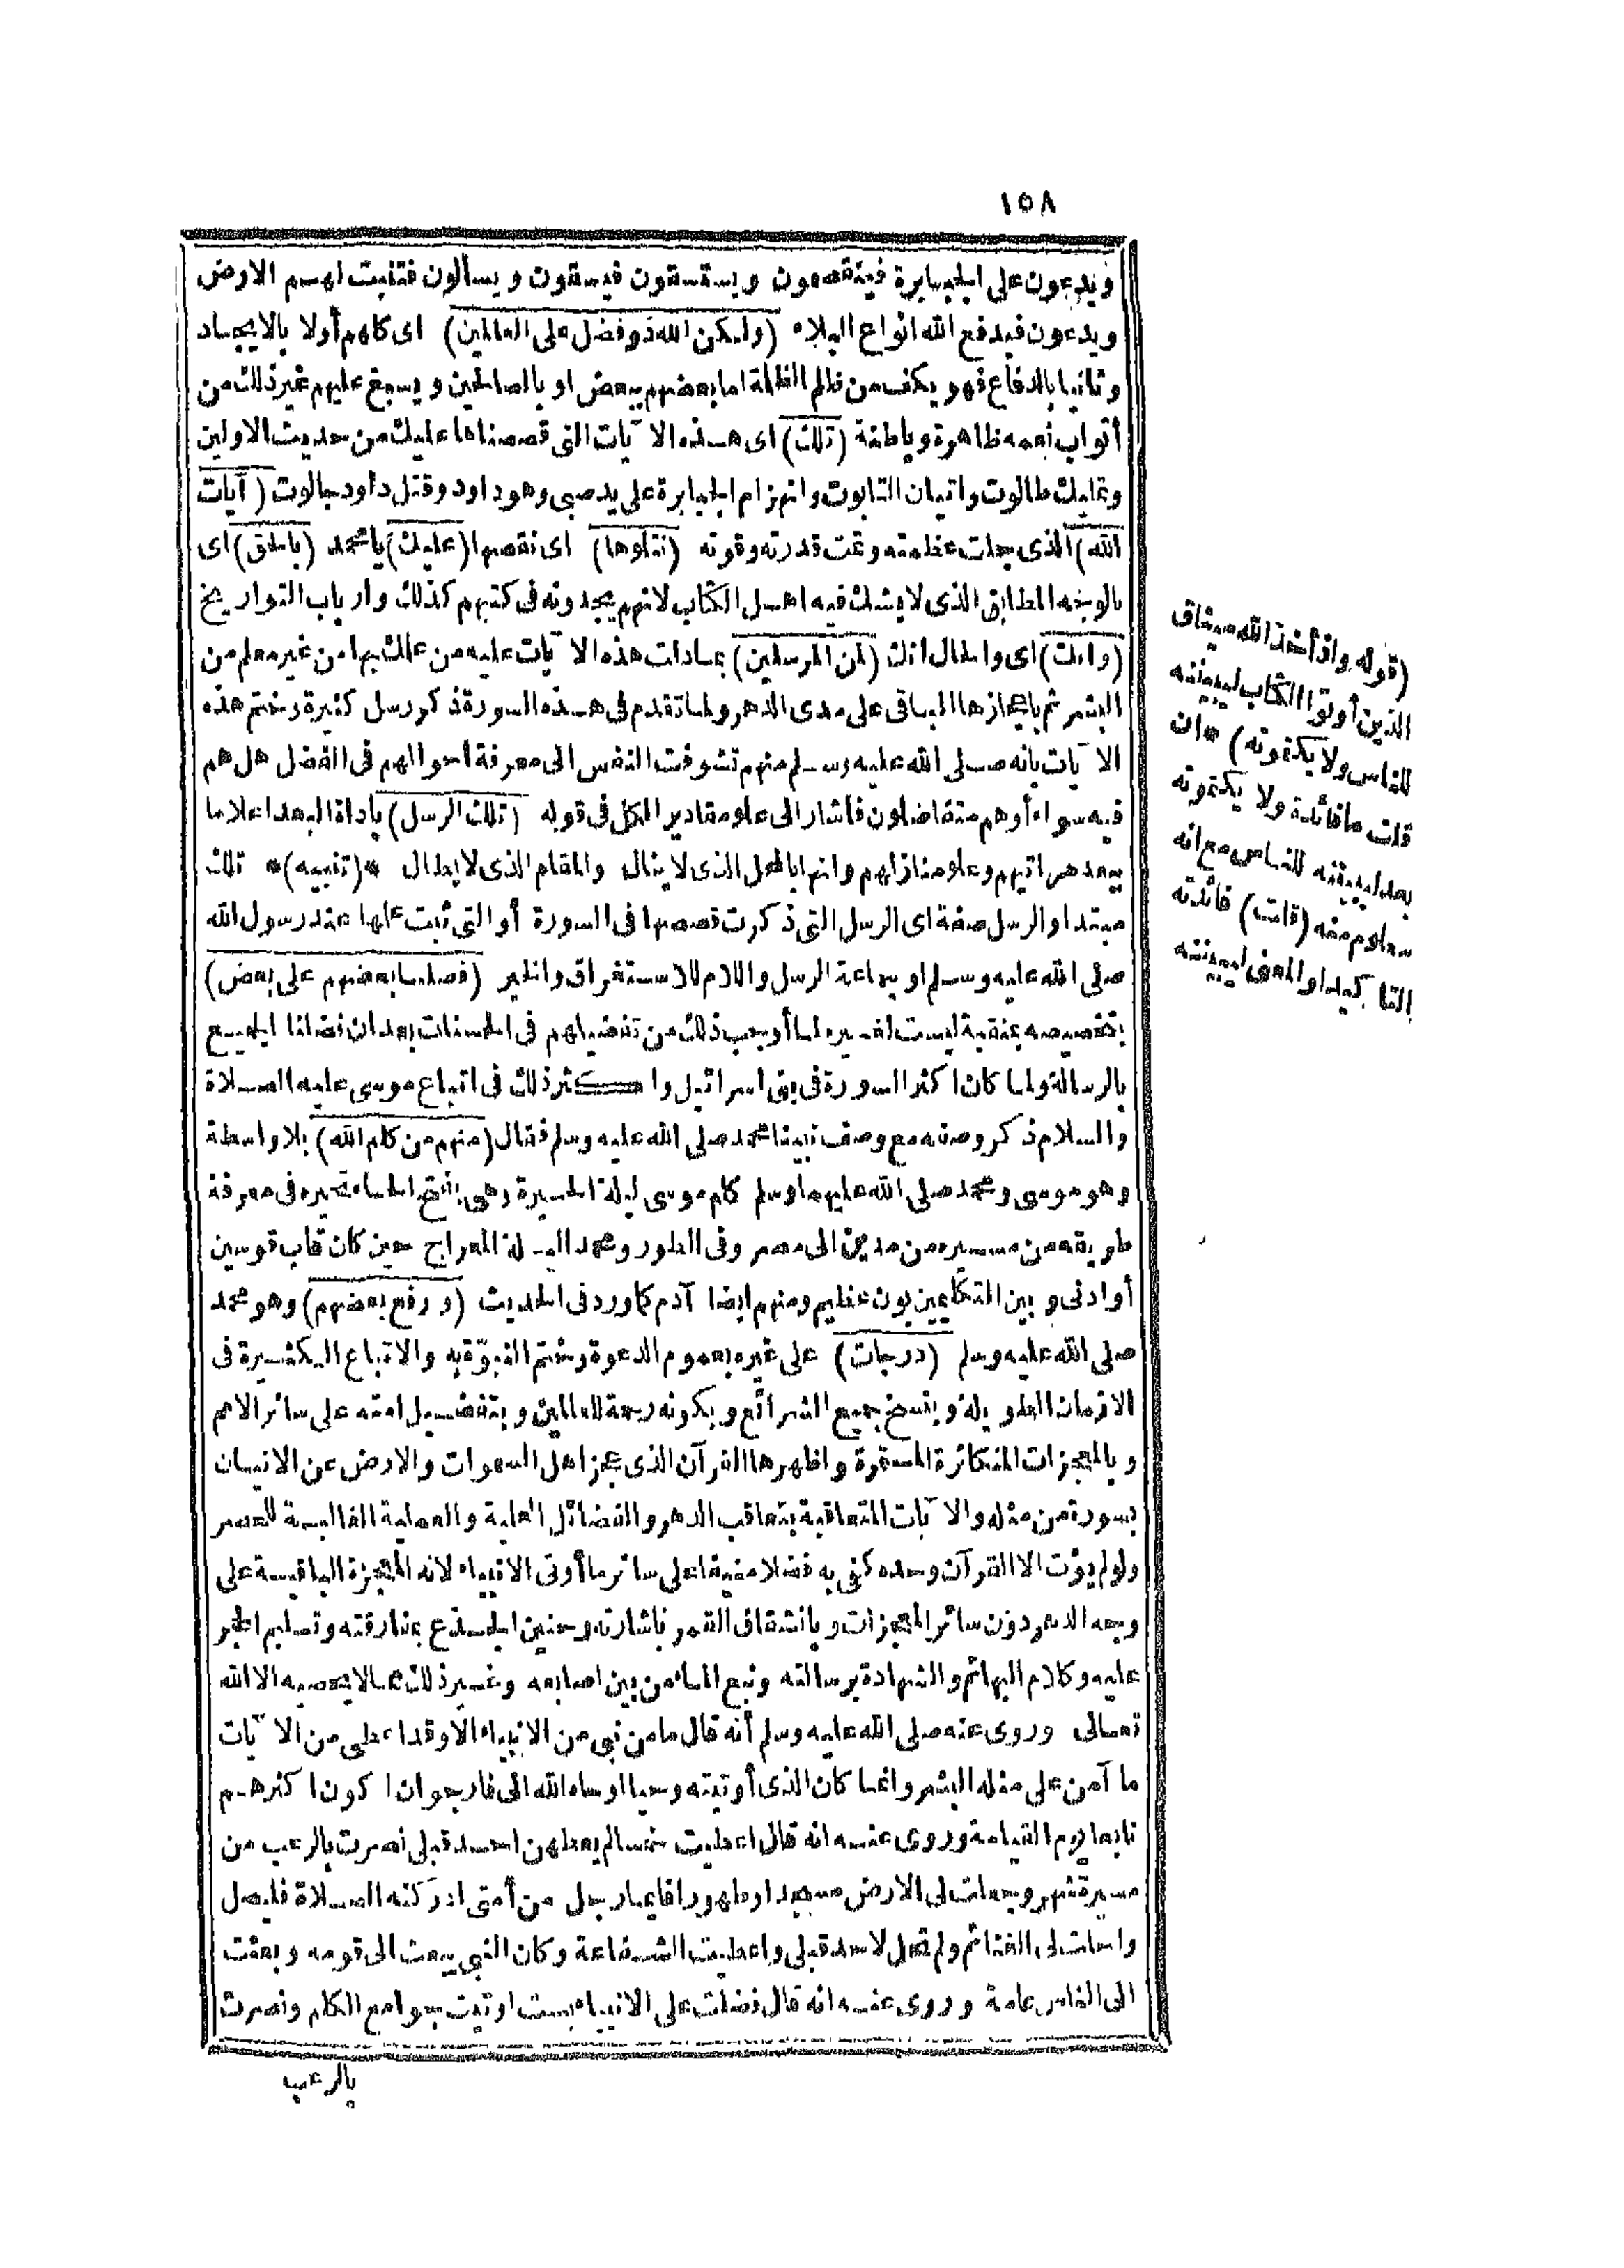 ١٥٨
ويدعون على الجبابرة فينقصمون ويستسقون فيسقون ويسألون فتنبت لهم الارض
ويدعون فيدفع الله انواع البلاء (ولكن الله ذو فضل على العالمين) اى كلهم أولا بالايجاد
وثانيا بالدفاع فهو يكف من ظلم الظلمة اما بعضهم ببعض او بالصالحين ويسبغ عليهم غير ذلك من
أثواب نعمه ظاهرة وباطنة (تلك) اى هذه الآيات التى قصصناها عليك من حديث الاولين
وتمليك طالوت واتيان التابوت وانهزام الجبابرة على يد صبى وهو داود وقتل داود جالوت (آيات
الله) الذى جلت عظمته وتمت قدرته وقوته (نتلوها) اى نقصها (عليك) يا محمد (بالحق) اى
بالوجه المطابق الذى لا يشك فيه اهل الكتاب لانهم يجدونه فى كتبهم كذلك وارباب التواريخ
(وانك) اى والحال انك (لمن المرسلين) بمادلت هذه الآيات عليه من علمك بها من غير معلم من
البشر ثم باعجازها الباقى على مدى الدهر ولما تقدم فى هذه السورة ذكر رسل كثيرة وختم هذه
الآيات بانه صلى الله عليه وسلم منهم تشوفت النفس الى معرفة احوالهم فى الفضل هل هم
فيه سواء أوهم متفاضلون فاشار الى علو مقادير الكل فى قوله (تلك الرسل) بأداة البعد اعلاما
ببعد مراتبهم وعلو منازلهم وانها بالمحل الذى لا ينال والمقام الذى لا يطال *(تنبيه)* تلك
مبتدا والرسل صفة اى الرسل التى ذكرت قصصها فى السورة أو التى ثبت علمها عند رسول الله
صلى الله عليه وسلم او جماعة الرسل واللام للاستغراق والخبر (فضلنا بعضهم على بعض)
بتخصيصه بمنقبة ليست لغيره لما أوجب ذلك من تفضيلهم فى الحسنات بعد ان فضلنا الجميع
بالرسالة ولما كان اكثر السورة فى بنى اسرائيل واكثر ذلك فى اتباع موسى عليه الصلاة
والسلام ذكر وصفه مع وصف نبينا محمد صلى الله عليه وسلم فقال (منهم من كلم الله) بلا واسطة
وهو موسى ومحمد صلى الله عليهما وسلم كلم موسى ليلة الحيرة وهى بفتح الحاء تحيره فى معرفة
طريقه من مسيره من مدين الى مصر وفى الطور ومحمد اليلة المعراج حين كان قاب قوسين
أوادنى وبين التكليمين بون عظيم ومنهم ايضا آدم كما ورد فى الحديث (ورفع بعضهم) وهو محمد
صلى الله عليه وسلم (درجات) على غيره بعموم الدعوة وختم النبوّة به والاتباع الكثيرة فى
الازمان الطويلة وبنسخ جميع الشرائع وبكونه رحمة للعالمين وبتفضيل امته على سائر الامم
وبالمعجزات المتكاثرة المستمرة واظهرها القرآن الذى عجز اهل السموات والارض عن الاتيان
بسورة من مثله والآيات المتعاقبة بتعاقب الدهر والفضائل العلمية والعملية الفائتة للحصر
ولو لم يؤت الا القرآن وحده كفى به فضلا منيفا على سائر ما أوتى الانبياء لانه المعجزة الباقية على
وجه الدهر دون سائر المعجزات وبانشقاق القمر باشارته وحنين الجذع بمفارقته وتسليم الحجر
عليه وكلام البهائم والشهادة برسالته ونبع الماء من بين اصابعه وغير ذلك مما لا يحصيه الا الله
تعالى وروى عنه صلى الله عليه وسلم أنه قال ما من نبى من الانبياء الا وقد اعطى من الآيات
ما آمن على مثله البشر وانما كان الذى أوتيته وحيا اوحاه الله الى فارجو ان اكون اكثرهم
تابعا يوم القيامة وروى عنه انه قال اعطيت خمسا لم يعطهن احد قبلى نصرت بالرعب من
مسيرة شهر وجعلت لى الارض مسجدا وطهورا فايما رجل من أمتى ادركته الصلاة فليصل
واحلت لى الغنائم ولم تحل لاحد قبلى واعطيت الشفاعة وكان النبى يبعث الى قومه وبعثت
الى الناس عامة وروى عنه انه قال فضلت على الانبياء بست اوتيت جوامع الكلم ونصرت
بالرعب
(قوله واذ أخذ الله ميثاق
الذين أوتوا الكتاب لتبيننه
للناس ولا يكتمونه) * ان
قلت ما فائدة ولا يكتمونه
بعد ليبيننه للناس مع انه
معلوم منه (قلت) فائدته
التاكيد او المعنى ليبيننه